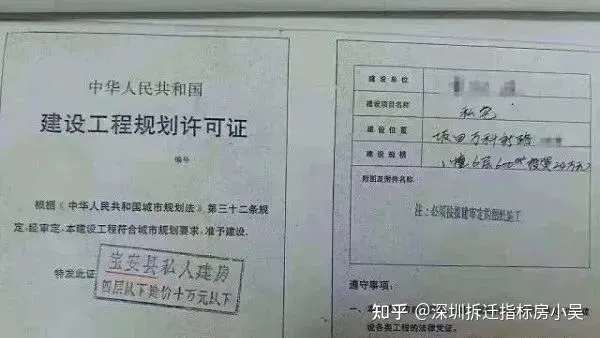 中华人民共和国
建设工程规划许可证
编号
根据《中华人民共和国城市规划法》第三十二条规
定,经审定,本建设工程符合城市规划要求,准予建设。
特发此证
宝安县私人建房
四层以下造价十万元以下
建设单位
建设项目名称
私宅
建设位置
坂田万科新路
建设规模
1幢6层600m² 投资24万元
附图及附件名称
注:必须按报建审定的图纸施工
遵守事项:
一、本
设各类工程的法律凭证。
知乎 @深圳拆迁指标房小吴